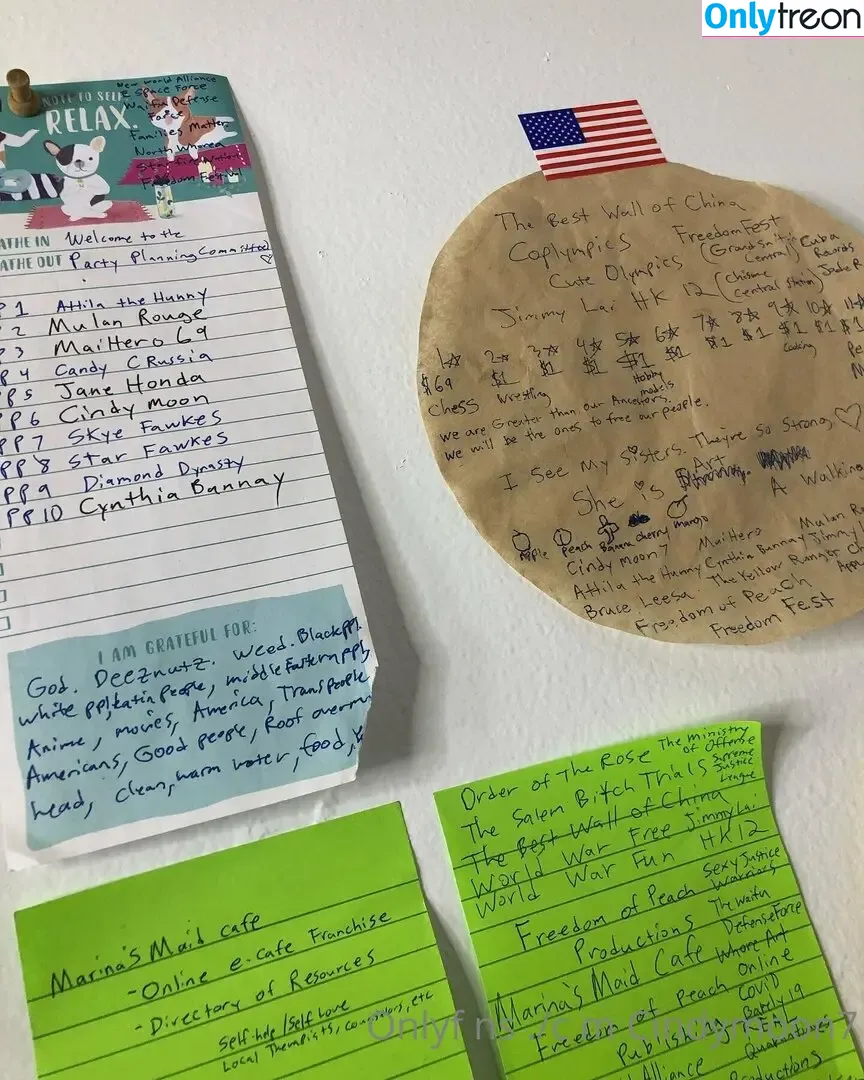 Onlytreon
NOTE TO SELF:
RELAX.
New World Alliance
& Space Force
Waifu Defense
Force
Families Matter
North Whorea
Freedom Festival
ATHE IN Welcome to the
ATHE OUT Party Planning Committee
P 1 Attila the Hunny
2 Mulan Rouge
P 3 MaiHero 69
P 4 Candy CRussia
PP5 Jane Honda
PP6 Cindy moon
PP7 Skye Fawkes
PP8 Star Fawkes
PP9 Diamond Dynasty
PP10 Cynthia Bannay
I AM GRATEFUL FOR:
God. Deeznutz. Weed. Blackppl.
white ppl, Latin people, middle Eastern ppl,
Anime, movies, America, Trans people
Americans, Good people, Roof over my
head, clean, warm water, food,
The Best Wall of China
Coplympics FreedomFest
Cute Olympics (Grandsn't in Central) Cuba Records
Jimmy Lai HK 12 (Chisme Central Station) Jade R
1☆ 2☆ 3☆ 4☆ 5☆ 6☆ 7☆ 8☆ 9☆ 10☆ 11☆
$69 $1 $1 $1 $1 $1 $1 $1 $1 $1 $1
Chess Wrestling Hobby models Cooking
We are Greater than our Ancestors.
We will be the ones to free our people.
I See My Sisters. They're So Strong ♡
She is Art A Walking
Apple Peach Banana cherry mango
Cindy moon 7 MaiHero Mulan Ro
Attila the Hunny Cynthia Bannay Jimmy
Bruce Leesa The Yellow Ranger
Freedom of Peach
Freedom Fest
Order of The Rose The Ministry of Offense
The Salem Bitch Trials Supreme Justice League
The Best Wall of China
World War Free Jimmy Lai
World War Fun HK12
Freedom of Peach Sexy Justice Warriors
Productions The Waifu
Marina's Maid Cafe Defense Force
Freedom of Peach Whore Art Online
Publishing Covid Barely 19
Alliance Productions Quarantine
Marina's Maid cafe
-Online e-cafe Franchise
-Directory of Resources
Self-help/Self Love
Local Therapists, counselors, etc
Onlyf ns /c m Cindymoon7